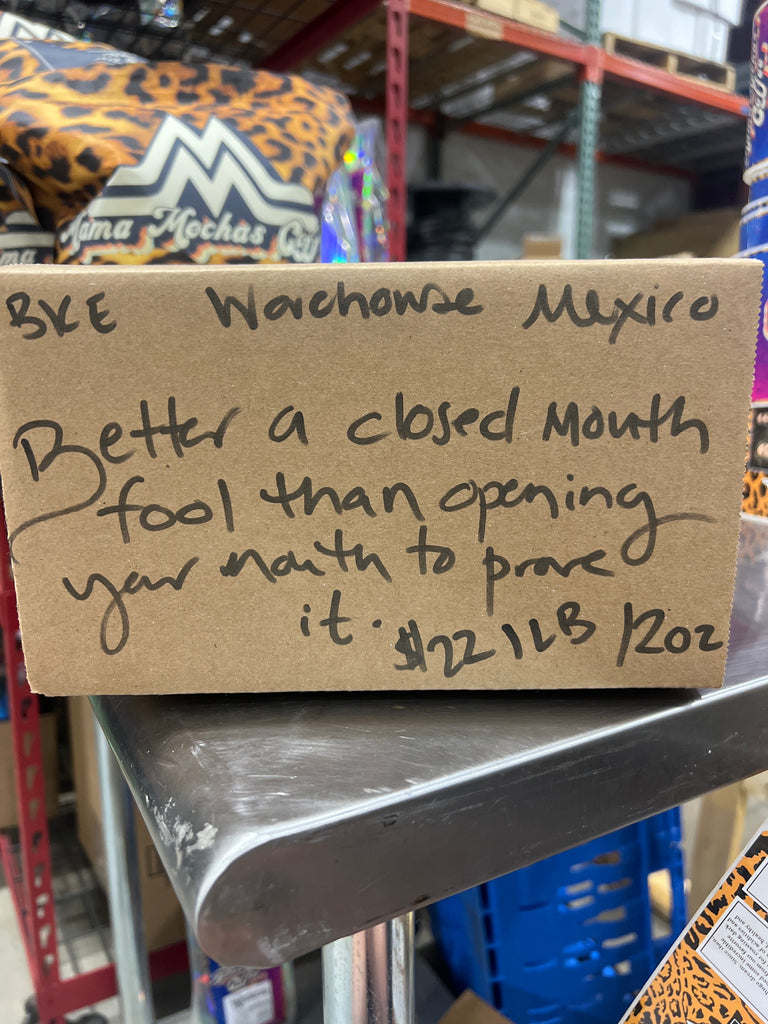 Mama Mochas
BKE Warehouse Mexico
Better a closed mouth
fool than opening
your mouth to prove
it. $22 1LB /12oz